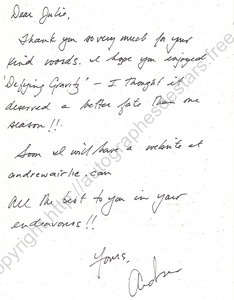 Dear Julie,
Thank you so very much for your
kind words. I hope you enjoyed
'Defying Gravity' – I thought it
deserved a better fate than one
season!!
Soon I will have a website at
andrewairlie.com
All the best to you in your
endeavours!!
Yours,
Andrew
copyright http://autographesdestars.free